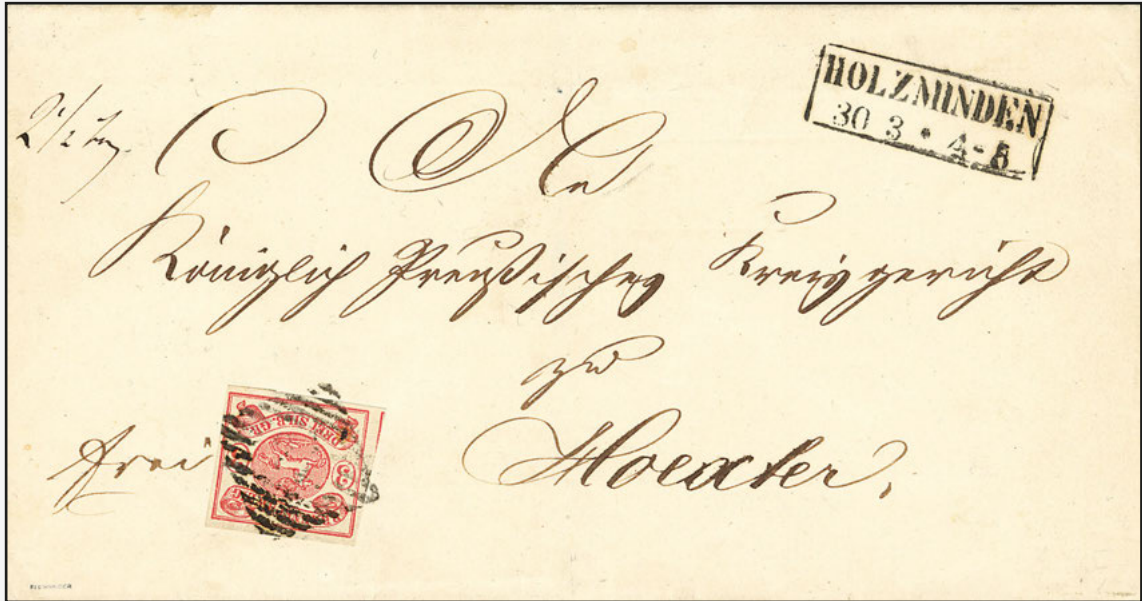 HOLZMINDEN
30 3 * 4-8
An
Königlich Preußisches Kreisgericht
zu
Hoexter.
frei
DREI SILB. GR.
3 3